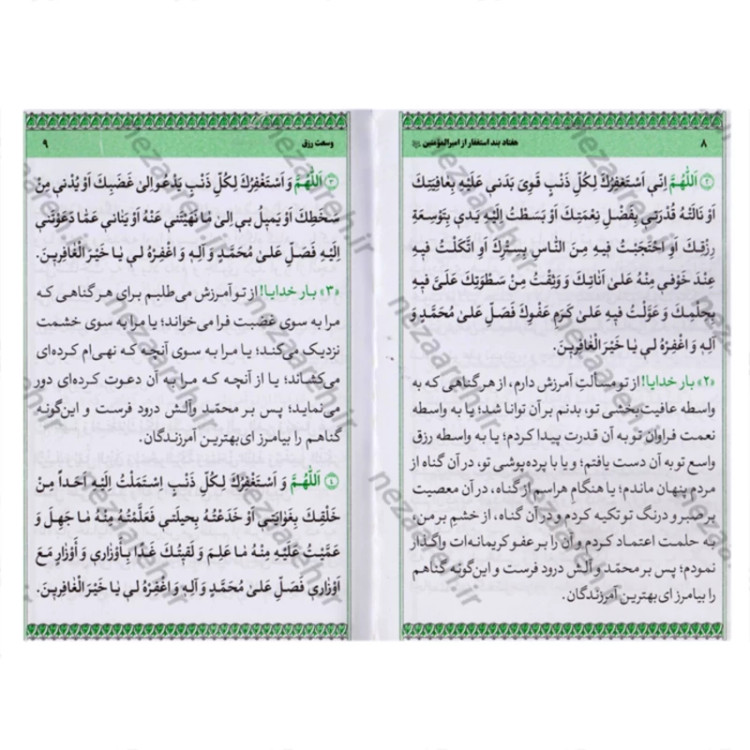 ۸
هفتاد بند استغفار از امیرالمؤمنین
۲ اَللّٰهُمَّ اِنّي اَسْتَغْفِرُكَ لِكُلِّ ذَنْبٍ قَوِیَ بَدَني عَلَيْهِ بِعافِيَتِكَ
اَوْ نٰالَتْهُ قُدْرَتي بِفَضْلِ نِعْمَتِكَ اَوْ بَسَطْتُ اِلَيْهِ يَدي بِتَوْسِعَةِ
رِزْقِكَ اَوِ احْتَجَبْتُ فيهِ مِنَ النّٰاسِ بِسِتْرِكَ اَوِ اتَّكَلْتُ فيهِ
عِنْدَ خَوْفي مِنْهُ عَلىٰ اَنٰاتِكَ وَ وَثِقْتُ مِنْ سَطْوَتِكَ عَلَیَّ فيهِ
بِحِلْمِكَ وَ عَوَّلْتُ فيهِ عَلىٰ كَرَمِ عَفْوِكَ فَصَلِّ عَلىٰ مُحَمَّدٍ وَ
آلِهِ وَ اغْفِرْهُ لي يٰا خَيْرَ الْغٰافِرينَ.
«۲» بار خدایا! از تو مسألتِ آمرزش دارم، از هر گناهی که به
واسطه عافیت‌بخشی تو، بدنم بر آن توانا شد؛ یا به واسطه
نعمت فراوان تو به آن قدرت پیدا کردم؛ یا به واسطه رزق
واسع تو به آن دست یافتم؛ و یا با پرده‌پوشی تو، در آن گناه از
مردم پنهان ماندم؛ یا هنگام هراسم از گناه، در آن معصیت
بر صبر و درنگ تو تکیه کردم و در آن گناه، از خشمِ بر من،
به حلمت اعتماد کردم و آن را بر عفو کریمانه‌ات واگذار
نمودم؛ پس بر محمّد و آلش درود فرست و این‌گونه گناهم
را بیامرز ای بهترین آمرزندگان.
وسعت رزق
۹
۳ اَللّٰهُمَّ وَ اَسْتَغْفِرُكَ لِكُلِّ ذَنْبٍ يَدْعُو اِلىٰ غَضَبِكَ اَوْ يُدْني مِنْ
سَخَطِكَ اَوْ يَميلُ بي اِلىٰ مٰا نَهَيْتَني عَنْهُ اَوْ يَنْاٰني عَمّٰا دَعَوْتَني
اِلَيْهِ فَصَلِّ عَلىٰ مُحَمَّدٍ وَ آلِهِ وَ اغْفِرْهُ لي يٰا خَيْرَ الْغٰافِرينَ.
«۳» بار خدایا! از تو آمرزش می‌طلبم برای هر گناهی که
مرا به سوی غضبت فرا می‌خواند؛ یا مرا به سوی خشمت
نزدیک می‌کند؛ یا مرا به سوی آنچه که نهی‌ام کرده‌ای
می‌کشاند؛ یا از آنچه که مرا به آن دعوت کرده‌ای دور
می‌نماید؛ پس بر محمّد و آلش درود فرست و این‌گونه
گناهم را بیامرز ای بهترین آمرزندگان.
۴ اَللّٰهُمَّ وَ اَسْتَغْفِرُكَ لِكُلِّ ذَنْبٍ اِسْتَمَلْتُ اِلَيْهِ اَحَداً مِنْ
خَلْقِكَ بِغَوٰايَتي اَوْ خَدَعْتُهُ بِحيلَتي فَعَلَّمْتُهُ مِنْهُ مٰا جَهِلَ وَ
عَمَّيْتُ عَلَيْهِ مِنْهُ مٰا عَلِمَ وَ لَقيتُكَ غَداً بِاَوْزٰاري وَ اَوْزٰارٍ مَعَ
اَوْزٰاري فَصَلِّ عَلىٰ مُحَمَّدٍ وَ آلِهِ وَ اغْفِرْهُ لي يٰا خَيْرَ الْغٰافِرينَ.
nezaareh.ir